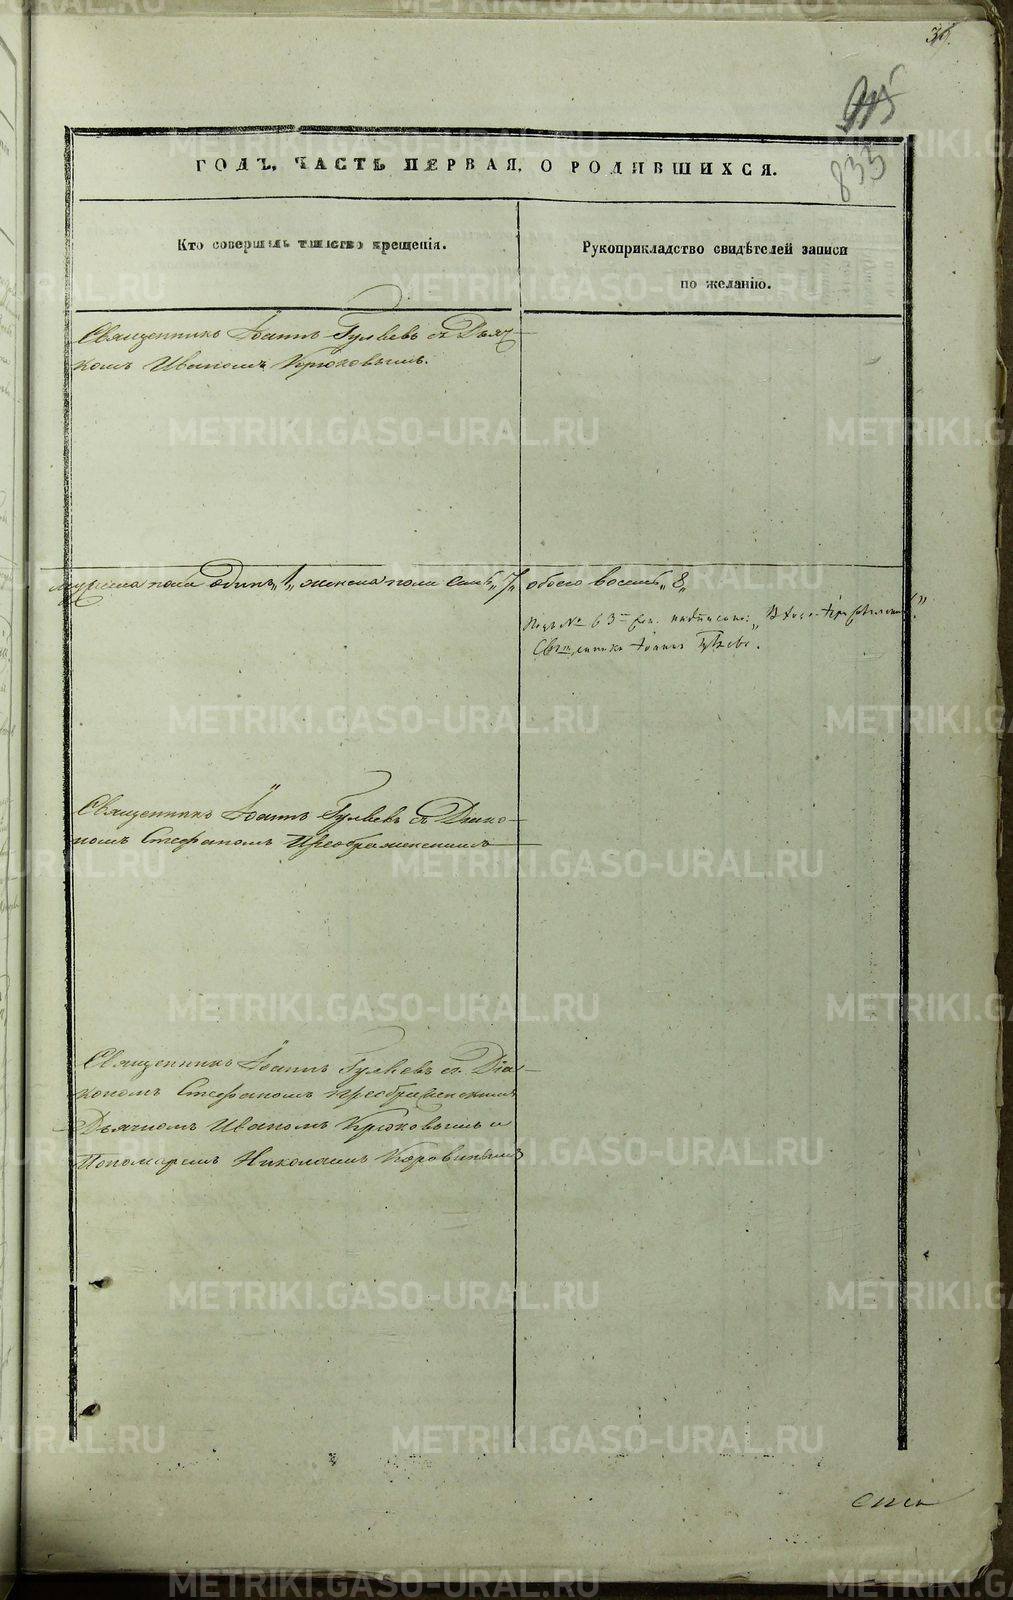 36.
915
833
ГОДЪ, ЧАСТЬ ПЕРВАЯ, О РОДИВШИХСЯ.
Кто совершалъ таинство крещенія.
Рукоприкладство свидѣтелей записи
по желанію.
Священникъ Іоаннъ Гуляевъ съ Дьяч-
комъ Иваномъ Крюковымъ.
мужеска пола одинъ „1„ женска пола семь „7„ обоего восемь „8„
Подъ № 63
Священникъ Іоаннъ
Священникъ Іоаннъ Гуляевъ съ Діако-
номъ Стефаномъ Преображенскимъ
Священникъ Іоаннъ Гуляевъ съ Діа-
кономъ Стефаномъ Преображенскимъ
Дьячкомъ Иваномъ Крюковымъ и
Пономаремъ Николаемъ Коровинымъ
METRIKI.GASO-URAL.RU